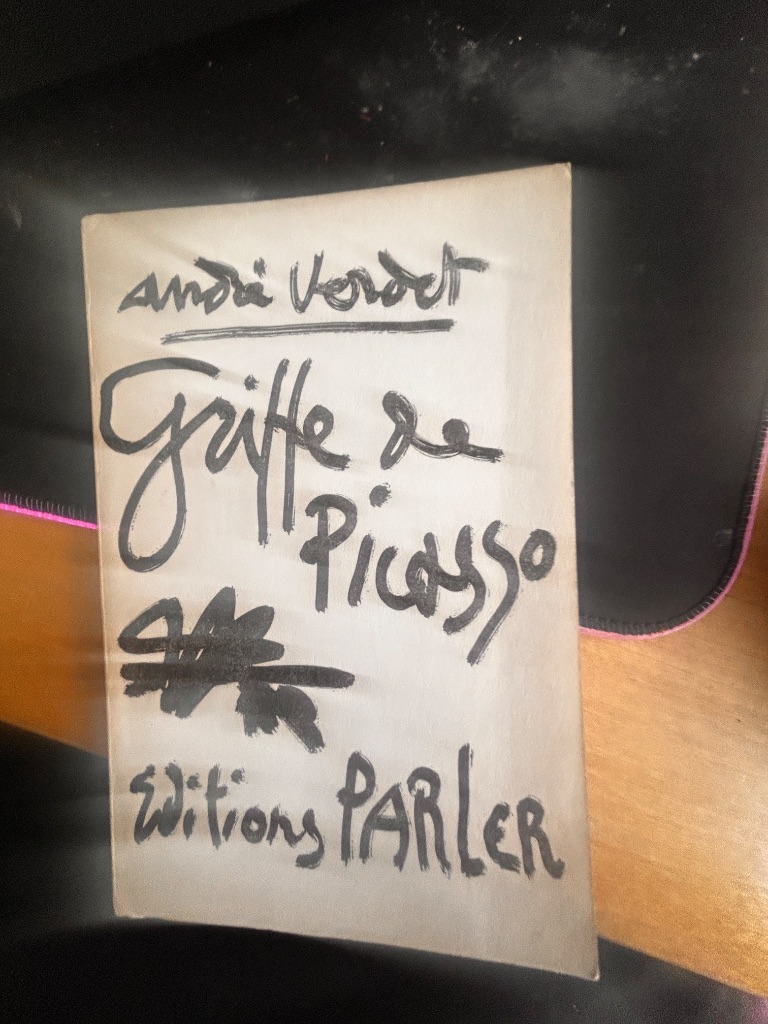 André Verdet
Griffe de
Picasso
Editions PARLER